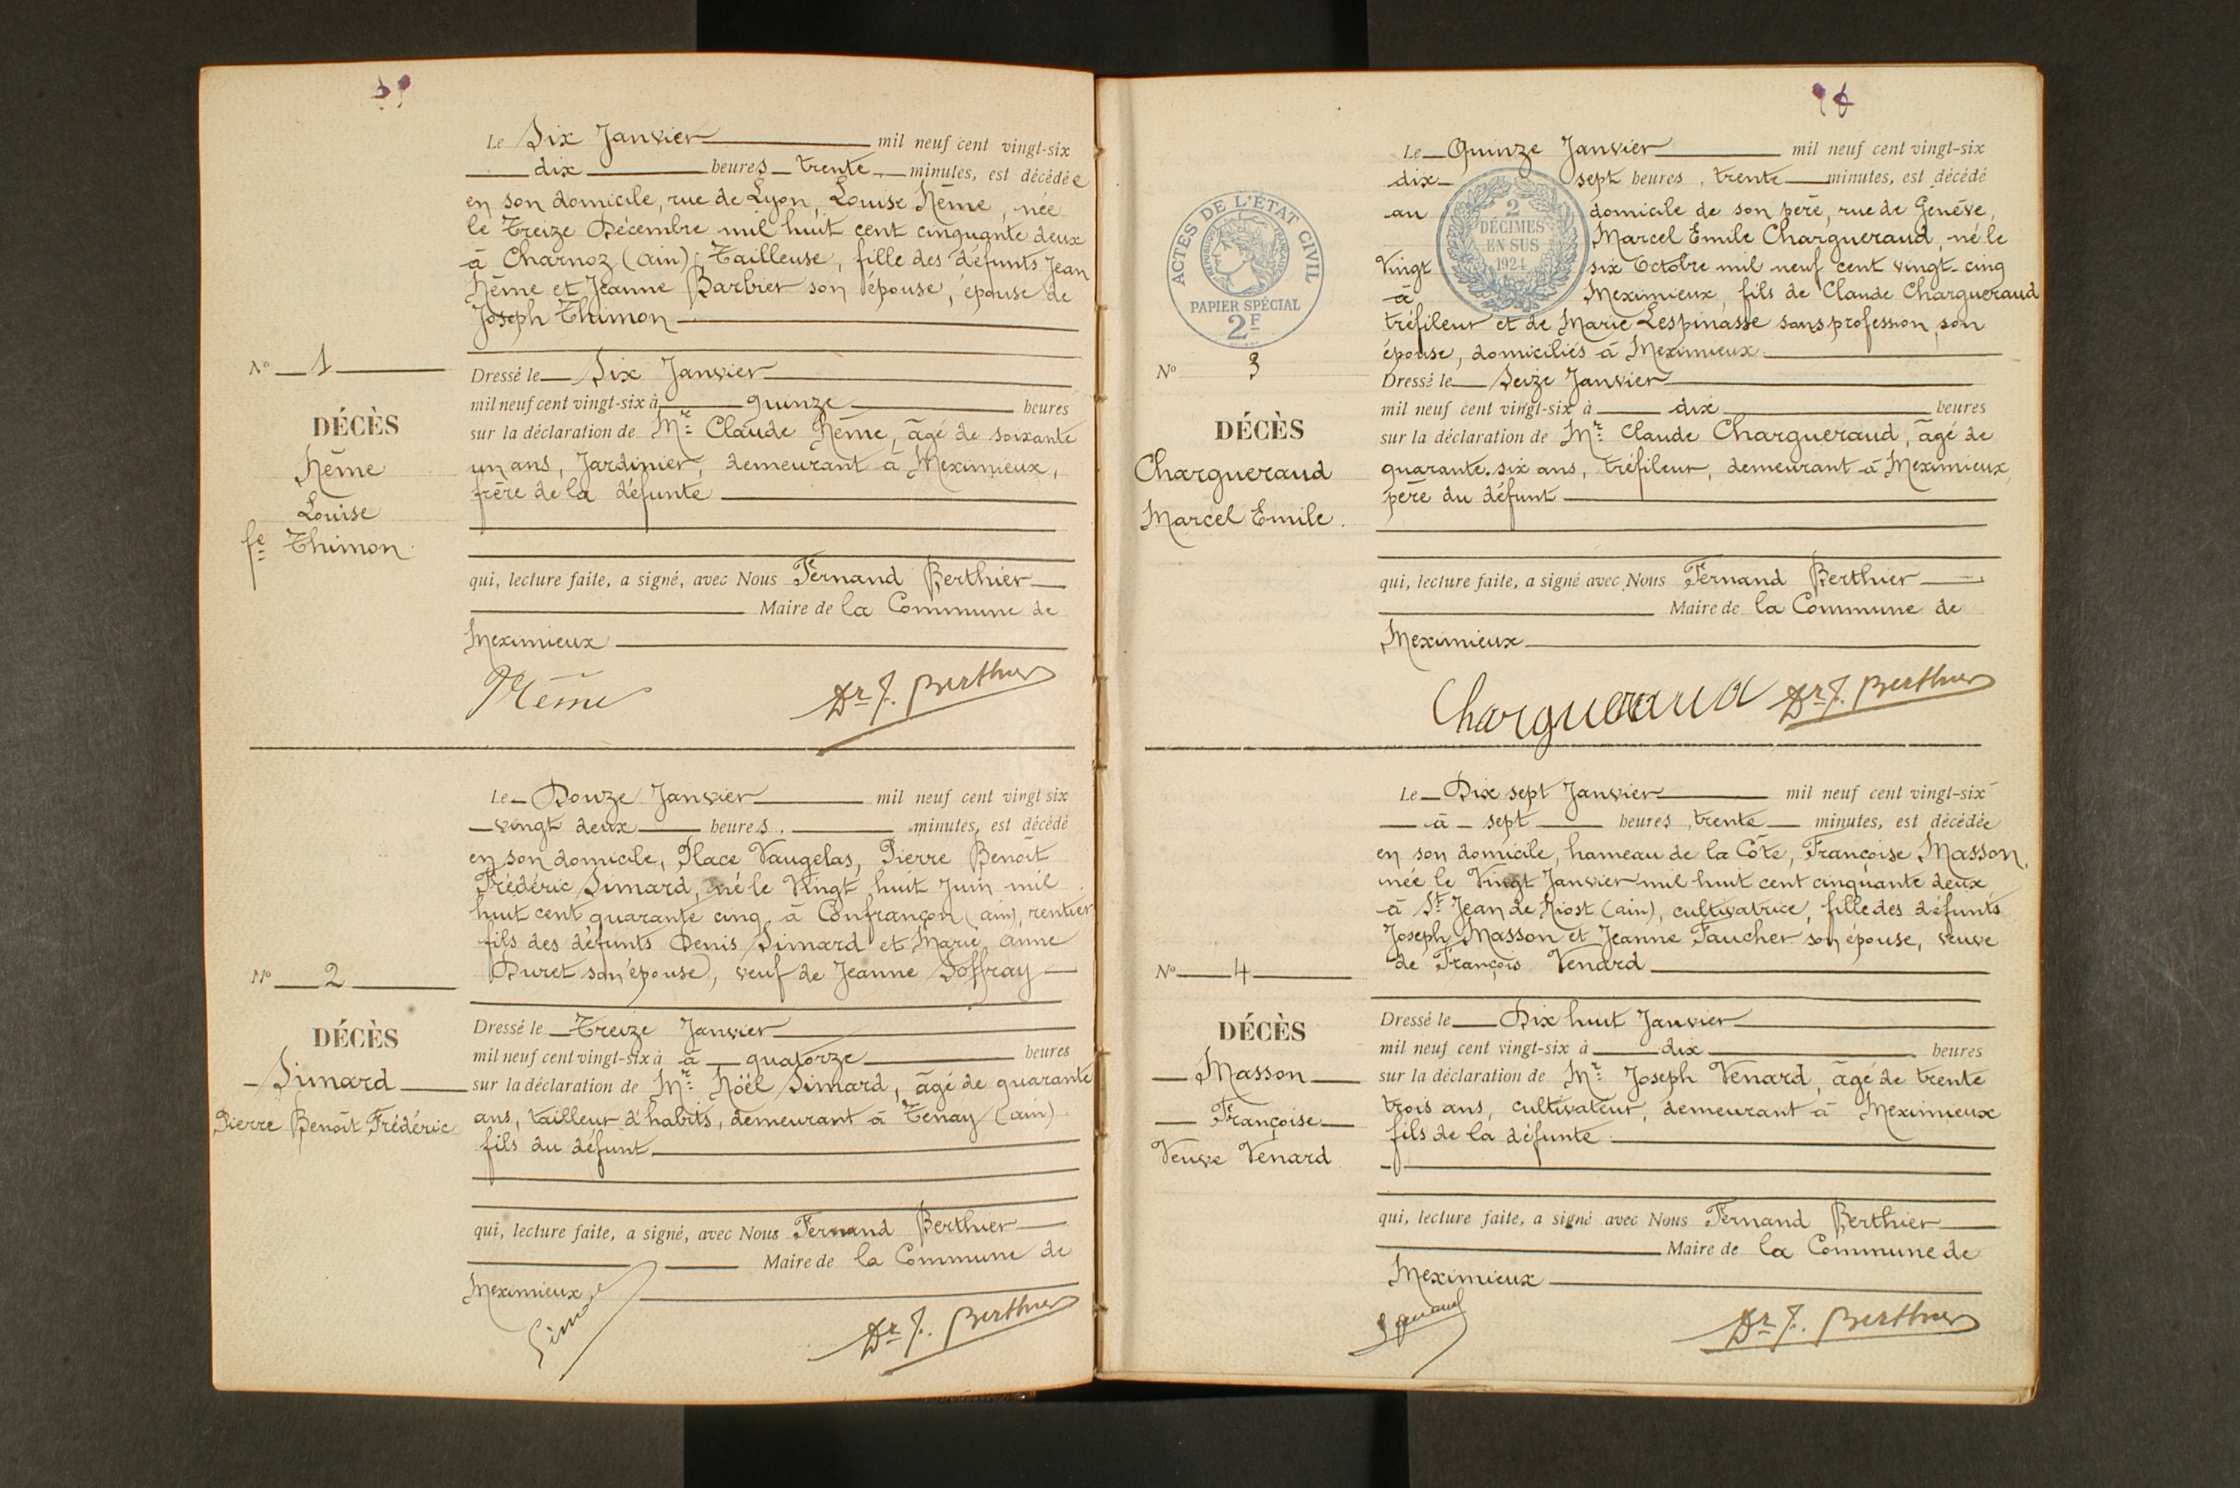 Le Six Janvier mil neuf cent vingt-six
dix heures trente minutes, est décédée
en son domicile, rue de Lyon, Louise Nême, née
le treize Décembre mil huit cent cinquante deux
à Charnoz (Ain), Tailleuse, fille des défunts Jean
Nême et Jeanne Barbier son épouse, épouse de
Joseph Thimon
No 1
DÉCÈS
Nême
Louise
fe Thimon
Dressé le Six Janvier
mil neuf cent vingt-six à quinze heures
sur la déclaration de Mr Claude Nême, âgé de soixante
un ans, Jardinier, demeurant à Meximieux,
frère de la défunte
qui, lecture faite, a signé, avec Nous Fernand Berthier
Maire de la Commune de
Meximieux
Nême Dr F. Berthier
Le Douze Janvier mil neuf cent vingt six
vingt deux heures minutes, est décédé
en son domicile, Place Vaugelas, Pierre Benoît
Frédéric Simard, né le Vingt huit Juin mil
huit cent quarante cinq, à Confrançon (Ain), rentier
fils des défunts Denis Simard et Marie Anne
Duret son épouse, veuf de Jeanne Soffray
No 2
DÉCÈS
Simard
Pierre Benoît Frédéric
Dressé le Treize Janvier
mil neuf cent vingt-six à à quatorze heures
sur la déclaration de Mr Noël Simard, âgé de quarante
ans, tailleur d'habits, demeurant à Tenay (Ain)
fils du défunt
qui, lecture faite, a signé, avec Nous Fernand Berthier
Maire de la Commune de
Meximieux
Dr F. Berthier
Le Quinze Janvier mil neuf cent vingt-six
dix sept heures, trente minutes, est décédé
au domicile de son père, rue de Genève,
Marcel Emile Chargueraud, né le
Vingt six Octobre mil neuf cent vingt-cinq
à Meximieux, fils de Claude Chargueraud
tréfileur et de Marie Lespinasse sans profession, son
épouse, domiciliés à Meximieux
ACTES DE L'ÉTAT CIVIL
PAPIER SPÉCIAL
2F
2
DÉCIMES
EN SUS
1924
No 3
DÉCÈS
Chargueraud
Marcel Emile.
Dressé le Seize Janvier
mil neuf cent vingt-six à dix heures
sur la déclaration de Mr Claude Chargueraud, âgé de
quarante-six ans, tréfileur, demeurant à Meximieux,
père du défunt
qui, lecture faite, a signé avec Nous Fernand Berthier
Maire de la Commune de
Meximieux
Chargueraud Dr F. Berthier
Le Dix sept Janvier mil neuf cent vingt-six
à sept heures, trente minutes, est décédée
en son domicile, hameau de la Côte, Françoise Masson,
née le Vingt Janvier mil huit cent cinquante deux
à St Jean de Niost (Ain), cultivatrice, fille des défunts
Joseph Masson et Jeanne Faucher son épouse, veuve
de François Venard
No 4
DÉCÈS
Masson
Françoise
Veuve Venard
Dressé le Dix huit Janvier
mil neuf cent vingt-six à dix heures
sur la déclaration de Mr Joseph Venard, âgé de trente
trois ans, cultivateur, demeurant à Meximieux
fils de la défunte
qui, lecture faite, a signé avec Nous Fernand Berthier
Maire de la Commune de
Meximieux
Dr F. Berthier